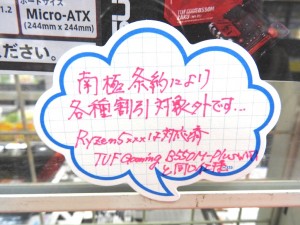 ボードサイズ
Micro-ATX
(244mm x 244mm)
ださい。
南極条約により
各種割引対象外です…
Ryzen5xxxは対応済
TUF Gaming B550M-Plus WiFi
と同じ仕様。